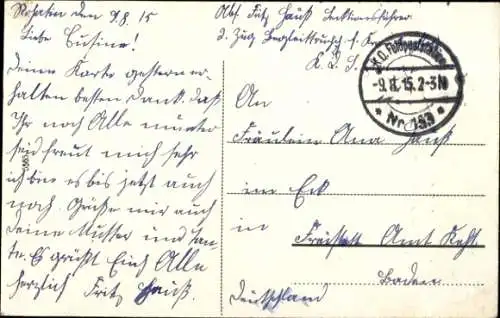 Rohatin den 9/8. 15
Liebe Cusine!
Deine Karte gestern er-
halten besten Dank. daß
Ihr noch Alle munter
seid freut mich sehr
ich bin es bis jetzt auch
noch. Grüße mir auch
deine Mutter und Tan-
te. Es grüßt Euch Alle
herzlich Fritz Hauß.
Abs. Fritz Hauß Sektionsführer
2. Zug
K. D. S.
K.D. Feldpoststation
-9.8.15.2-3N
* Nr. 133 *
An
Fräulein Ana Hauß
im Eck
in
Freistett Amt Kehl
Baden
Deutschland